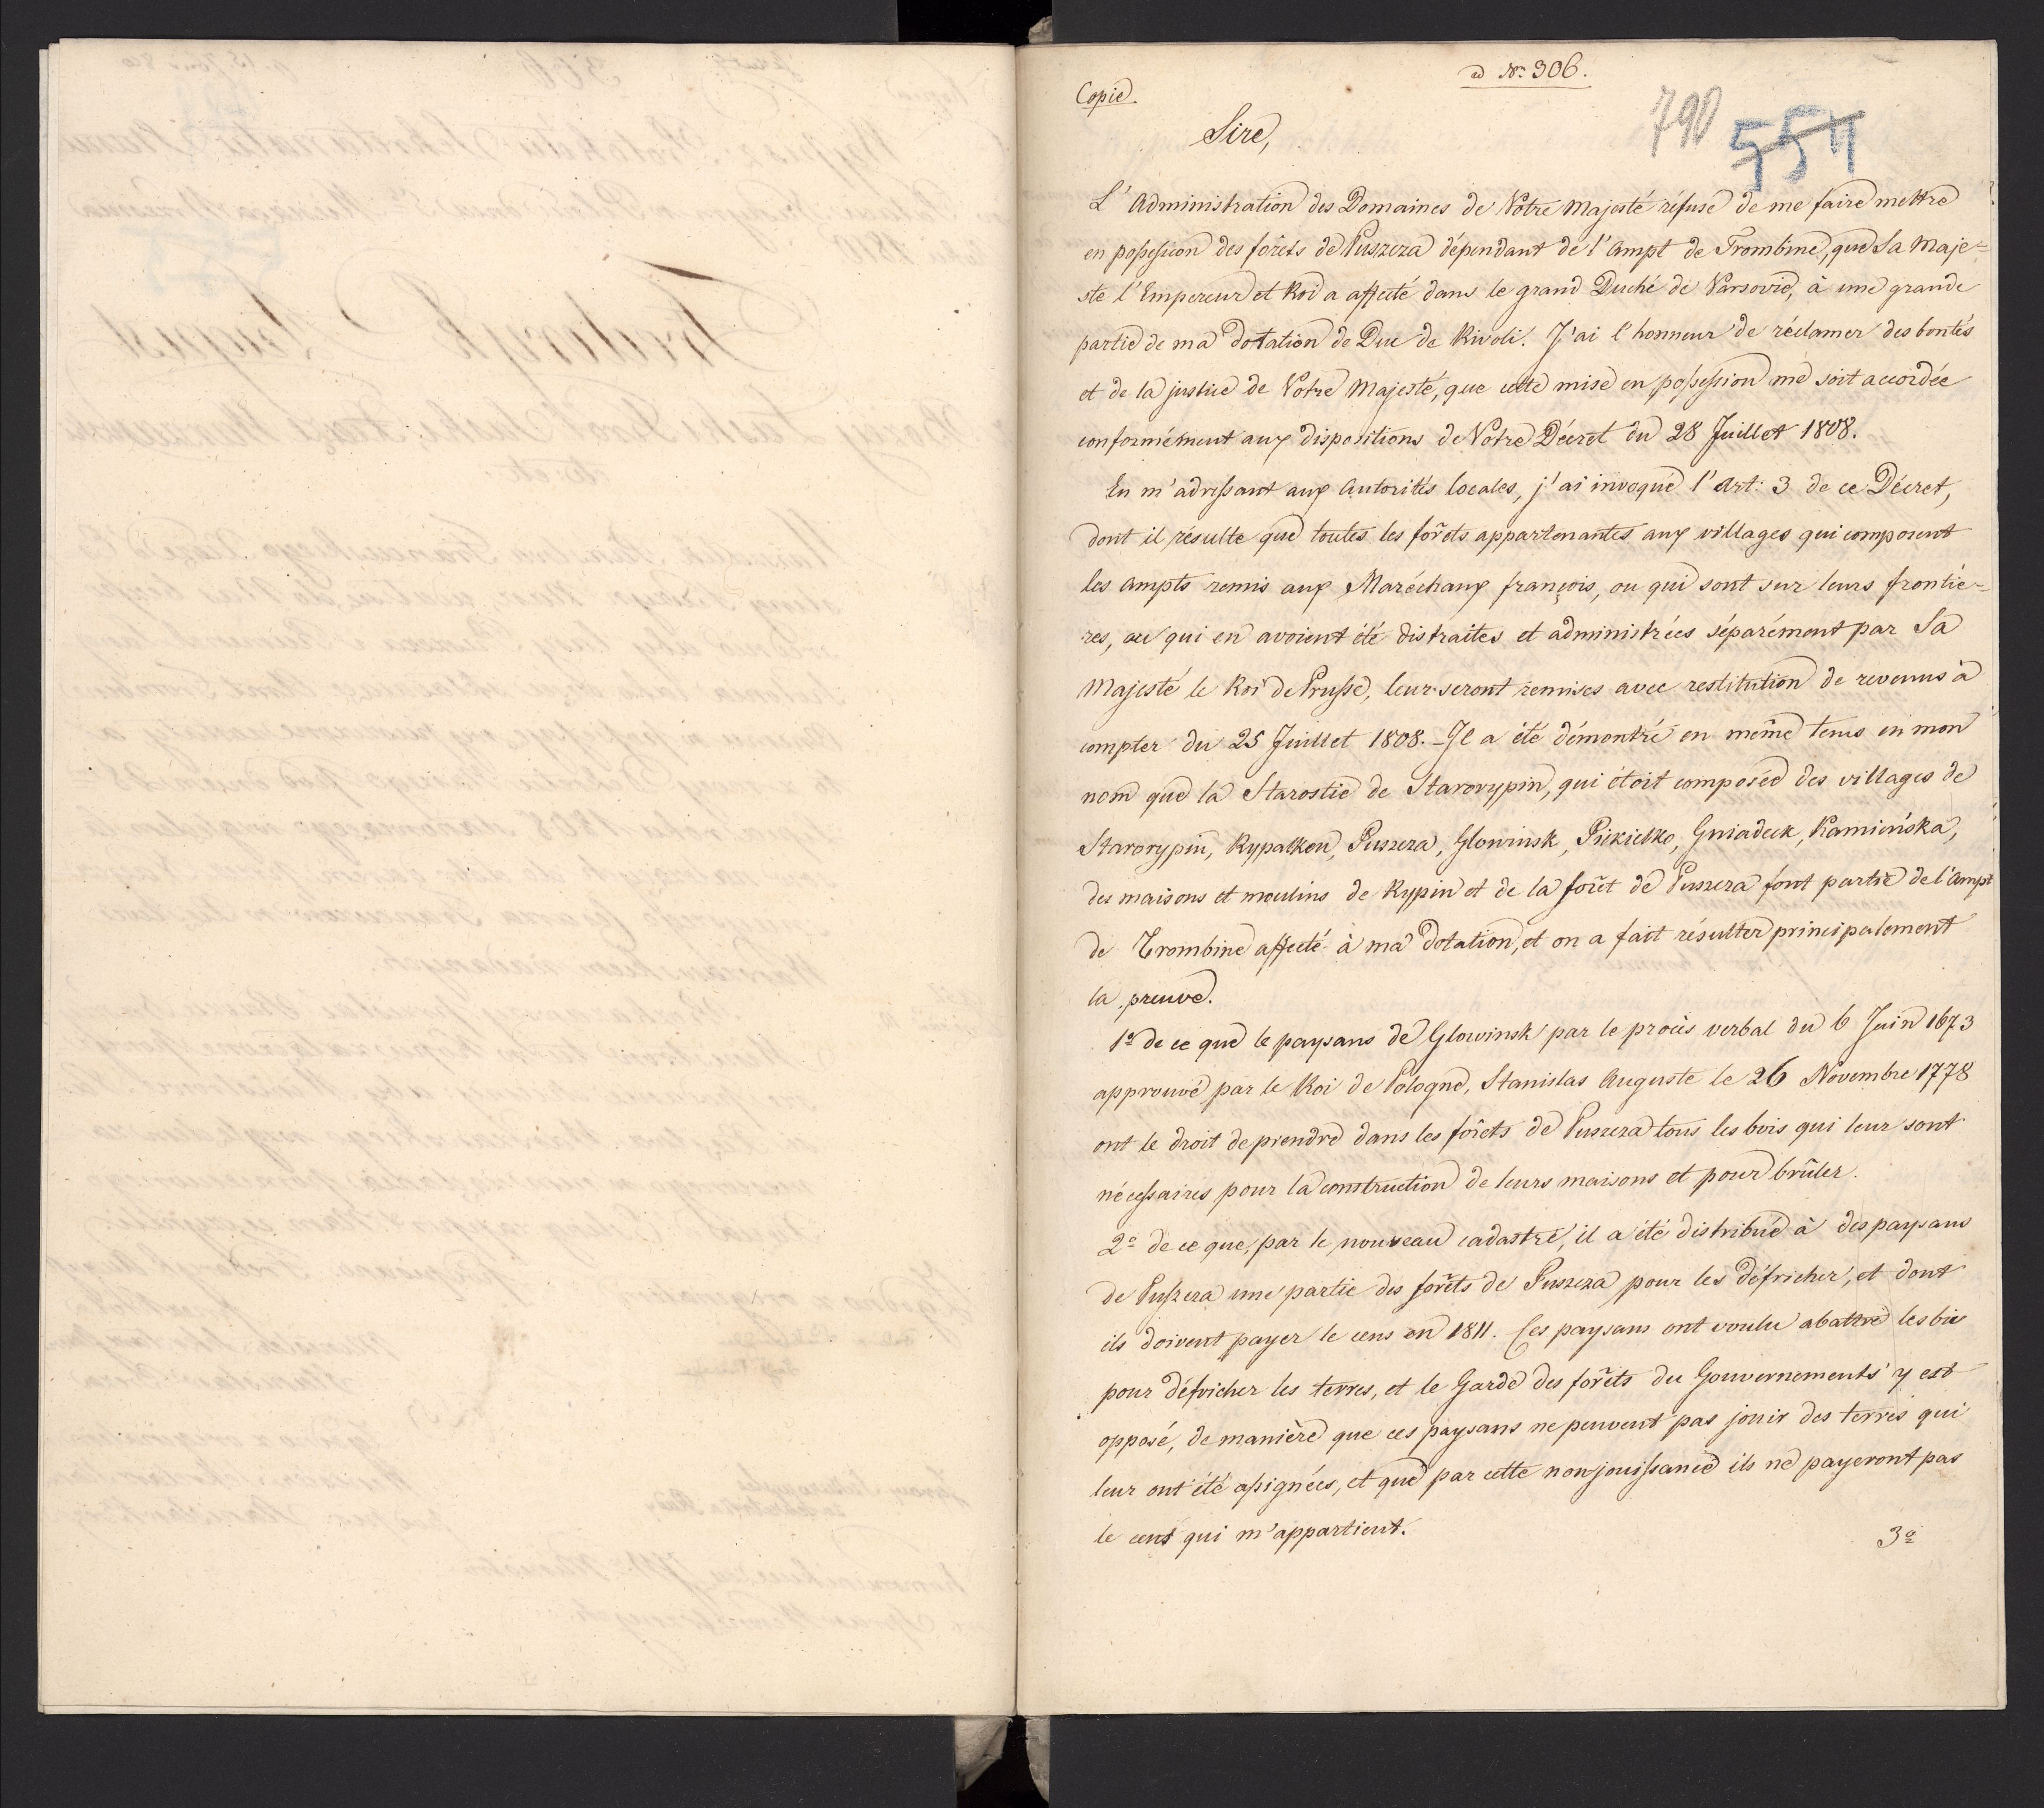 ad Nr. 306.
Copie
790
554
Sire,
L'Administration des Domaines de Votre Majesté réfuse de me faire mettre
en possession des forêts de Puszcza dépendant de l'Ampt de Trombine, que Sa Maje-
sté l'Empereur et Roi a affecté dans le grand Duché de Varsovie, à une grande
partie de ma dotation de Duc de Rivoli. J'ai l'honneur de réclamer des bontés
et de la justice de Votre Majesté, que cette mise en possession me soit accordée
conformément aux dispositions de Votre Décret du 28 Juillet 1808.
En m'adressant aux Autorités locales, j'ai invoqué l'Art: 3 de ce Décret,
dont il résulte que toutes les forêts appartenantes aux villages qui composent
les Ampts remis aux Maréchaux françois, ou qui sont sur leurs frontiè-
res, ou qui en avoient été distraites et administrées séparément par Sa
Majesté le Roi de Prusse, leur seront remises avec restitution de revenus à
compter du 25 Juillet 1808. - Il a été démontré en même tems en mon
nom que la Starostie de Starorypin, qui étoit composée des villages de
Starorypin, Rypalken, Puszcza, Glowinsk, Piekielko, Gniadeck, Kamińska,
des maisons et moulins de Rypin et de la forêt de Puszcza font partie de l'Ampt
de Trombine affecté à ma dotation, et on a fait résulter principalement
la preuve.
1º de ce que le paysans de Glowinsk par le procès verbal du 6 Juin 1673
approuvé par le Roi de Pologne, Stanislas Auguste le 26 Novembre 1778
ont le droit de prendre dans les forêts de Puszcza tous les bois qui leur sont
nécessaires pour la construction de leurs maisons et pour brûler.
2º de ce que, par le nouveau cadastre, il a été distribué à des paysans
de Puszcza une partie des forêts de Puszcza pour les défricher, et dont
ils doivent payer le cens en 1811. Ces paysans ont voulu abattre les bois
pour défricher les terres, et le Garde des forêts du Gouvernement s'y est
opposé, de manière que ces paysans ne peuvent pas jouir des terres qui
leur ont été assignées, et que par cette non-jouissance ils ne payeront pas
le cens qui m'appartient.
3º